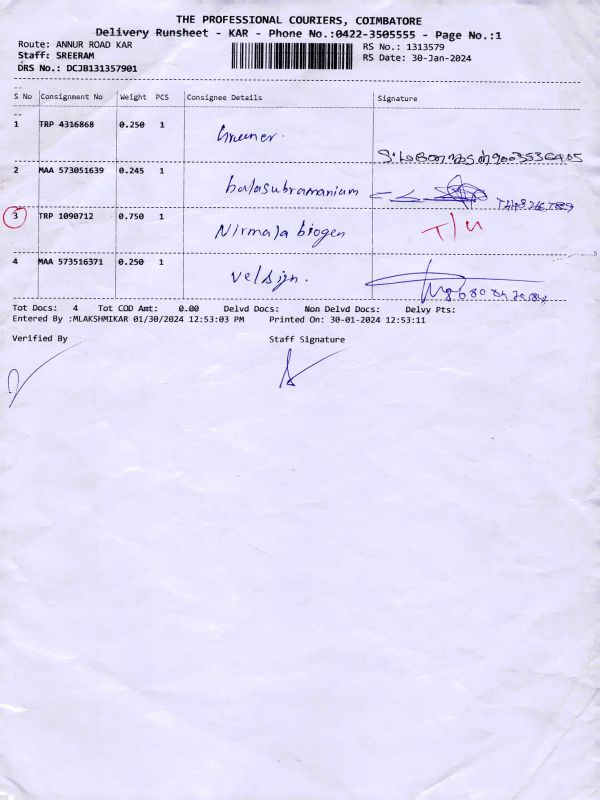 THE PROFESSIONAL COURIERS, COIMBATORE
Delivery Runsheet - KAR - Phone No.:0422-3505555 - Page No.:1
Route: ANNUR ROAD KAR RS No.: 1313579
Staff: SREERAM RS Date: 30-Jan-2024
DRS No.: DCJB131357901
S No Consignment No Weight PCS Consignee Details Signature
1 TRP 4316868 0.250 1
2 MAA 573051639 0.245 1 balasubramanium
3 TRP 1090712 0.750 1 Nirmala biogen T/U
4 MAA 573516371 0.250 1 velsign.
Tot Docs: 4 Tot COD Amt: 0.00 Delvd Docs: Non Delvd Docs: Delvy Pts:
Entered By :MLAKSHMIKAR 01/30/2024 12:53:03 PM Printed On: 30-01-2024 12:53:11
Verified By Staff Signature